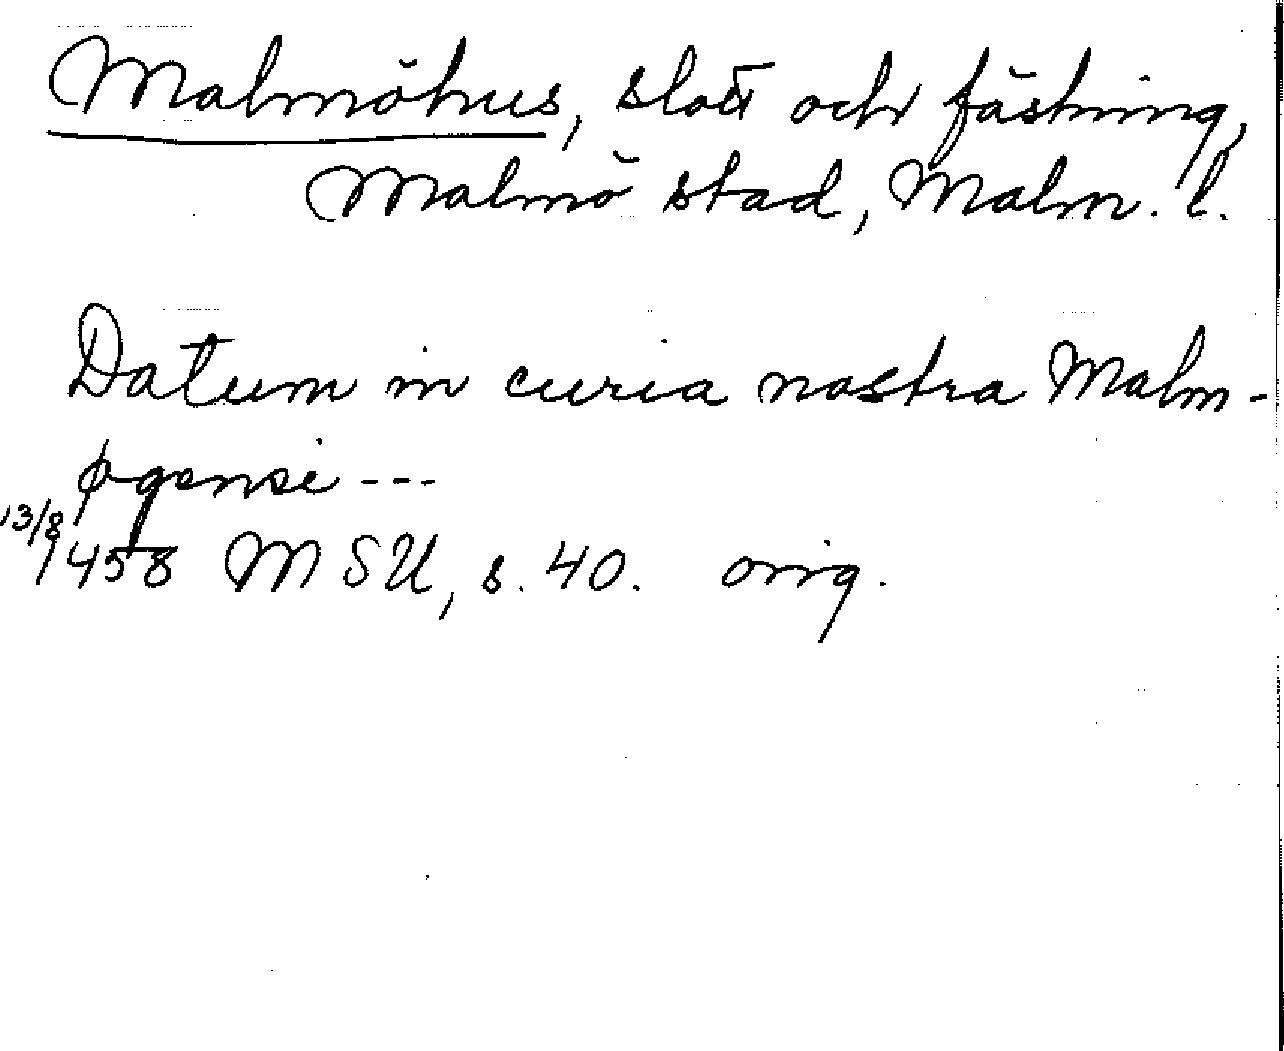 Malmöhus, slott och fästning,
Malmö stad, Malm. l.
Datum in curia nostra Malm-
øgensi ---
13/8 1458 MSU, s. 40. orig.